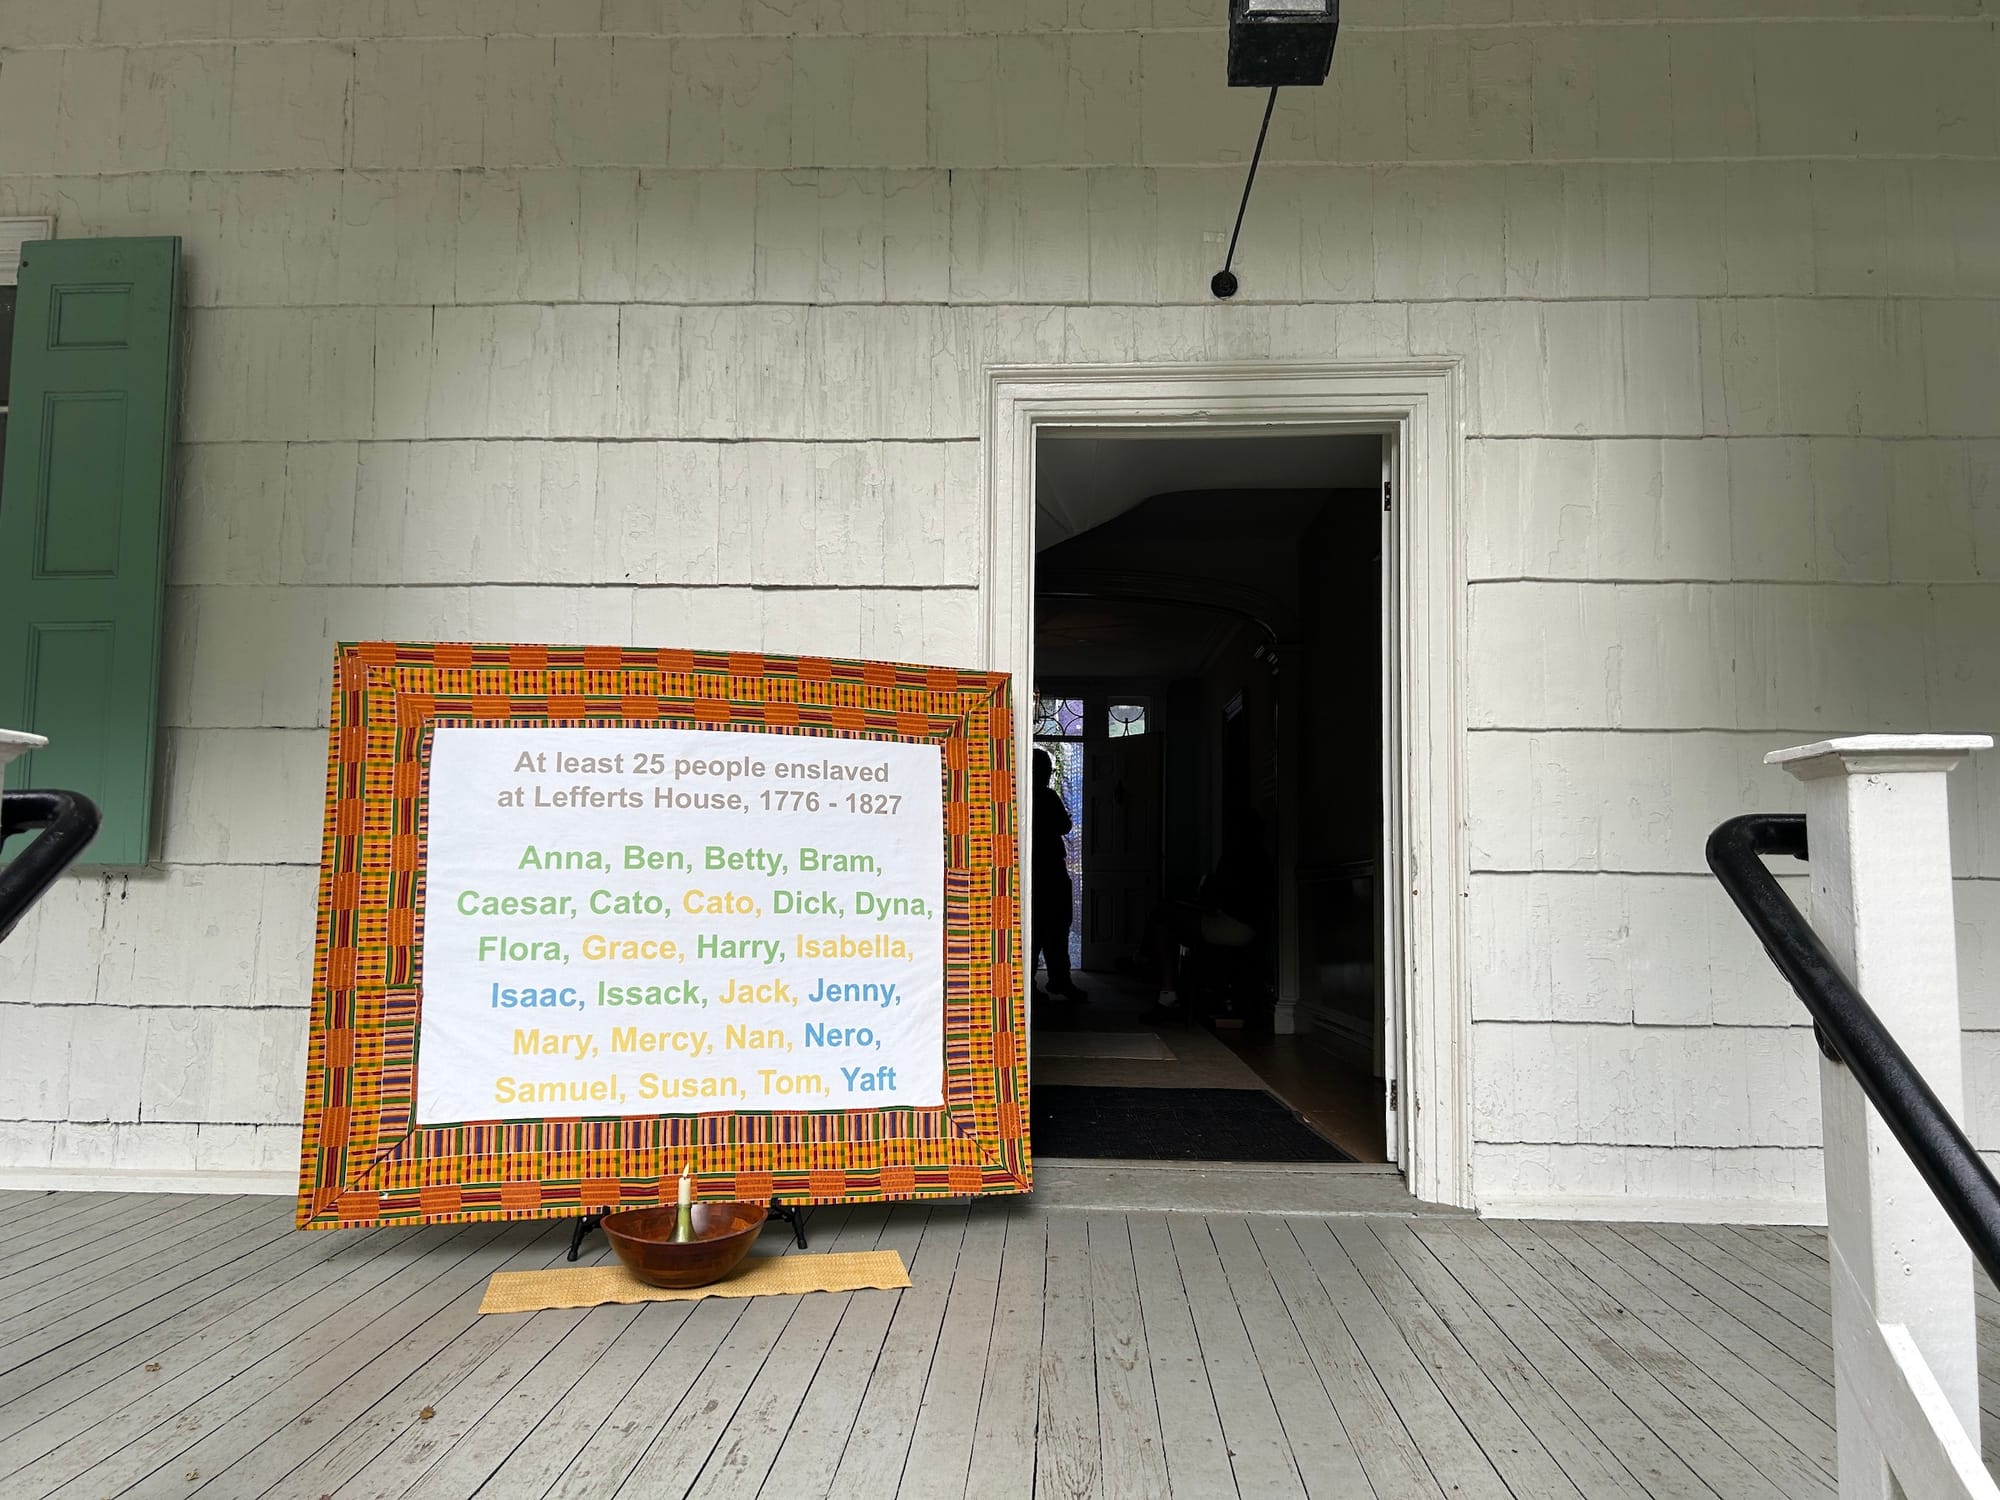 At least 25 people enslaved
at Lefferts House, 1776 - 1827
Anna, Ben, Betty, Bram,
Caesar, Cato, Cato, Dick, Dyna,
Flora, Grace, Harry, Isabella,
Isaac, Issack, Jack, Jenny,
Mary, Mercy, Nan, Nero,
Samuel, Susan, Tom, Yaft